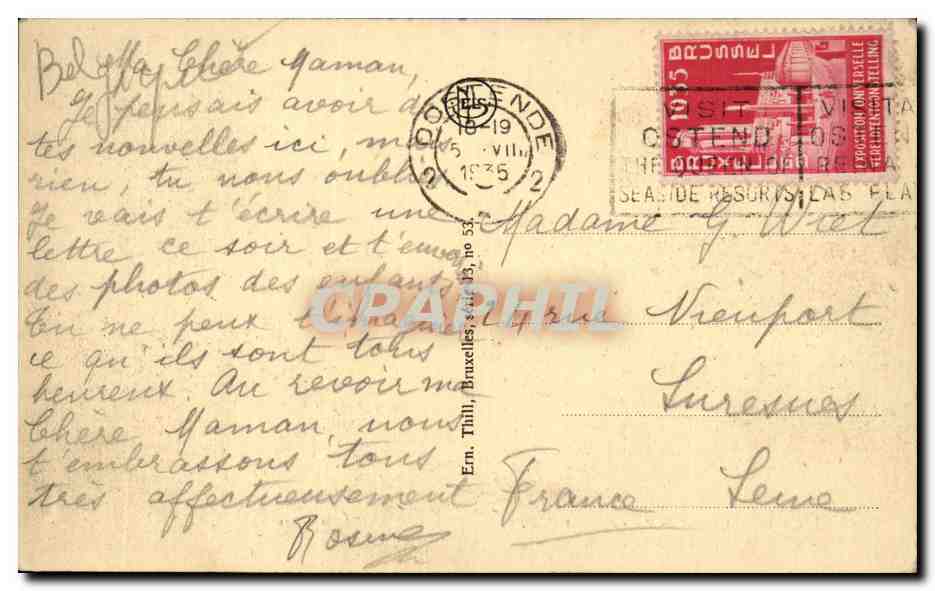 Ma Chère Maman,
Je pensais avoir de
tes nouvelles ici, mais
rien, tu nous oublies
Je vais t'écrire une
lettre ce soir et t'envoy
des photos des enfants
Tu ne peux t'imaginer
ce qu'ils sont tous
heureux. Au revoir ma
Chère Maman, nous
t'embrassons tous
très affectueusement
Ern. Thill, Bruxelles, série 13, no 53.
OOSTENDE
18-19
5 VIII
1935
2 2
1935
BRUSSEL
BRUXELLES
EXPOSITION UNIVERSELLE
WERELDTENTOONSTELLING
VISIT
OSTEND
THE QUEEN OF
SEASIDE RESORTS
LAS PLA
Madame G. Wiet
24 rue Nieuport
Suresnes
France Seine
CPAPHIL